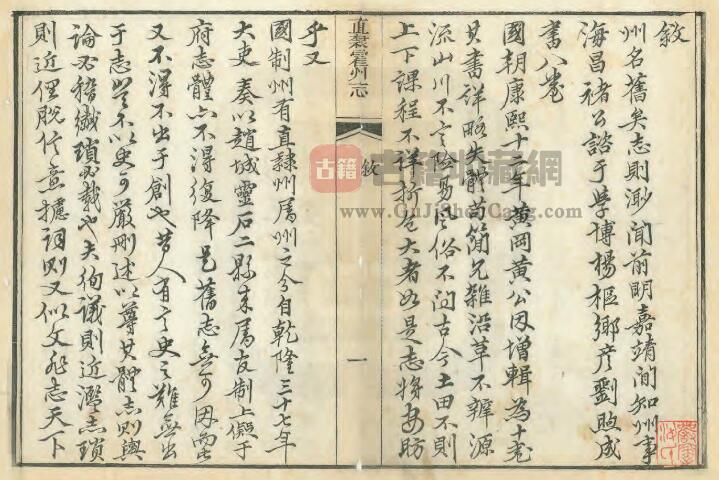 敘
州名舊矣志則渺聞前明嘉靖間知州事
海昌褚公諮于學博楊樞鄉彦劉昫成
書八卷
國朝康熙十二年黄岡黄公因增輯為十卷
其書詳略失體苟簡冗雜沿革不辨源
流山川不言險易風俗不問古今土田不則
上下課程不詳折色大者如是志將安昉
乎又
直隸霍州志
敘
一
國制州有直隸州屬州之分自乾隆三十七年
大吏奏以趙城靈石二縣来屬友制上儗于
府志體亦不得復降是舊志無可因而
又不得不出于創也昔人有言史之難無出
于志豈不以史可嚴刪述以尊其體志則與
論必稽纖瑣必載也夫徇議則近濫志瑣
則近俚脱信意攄詞則又似文非志天下
古籍 古籍收藏網
www.GuJiShouCang.com